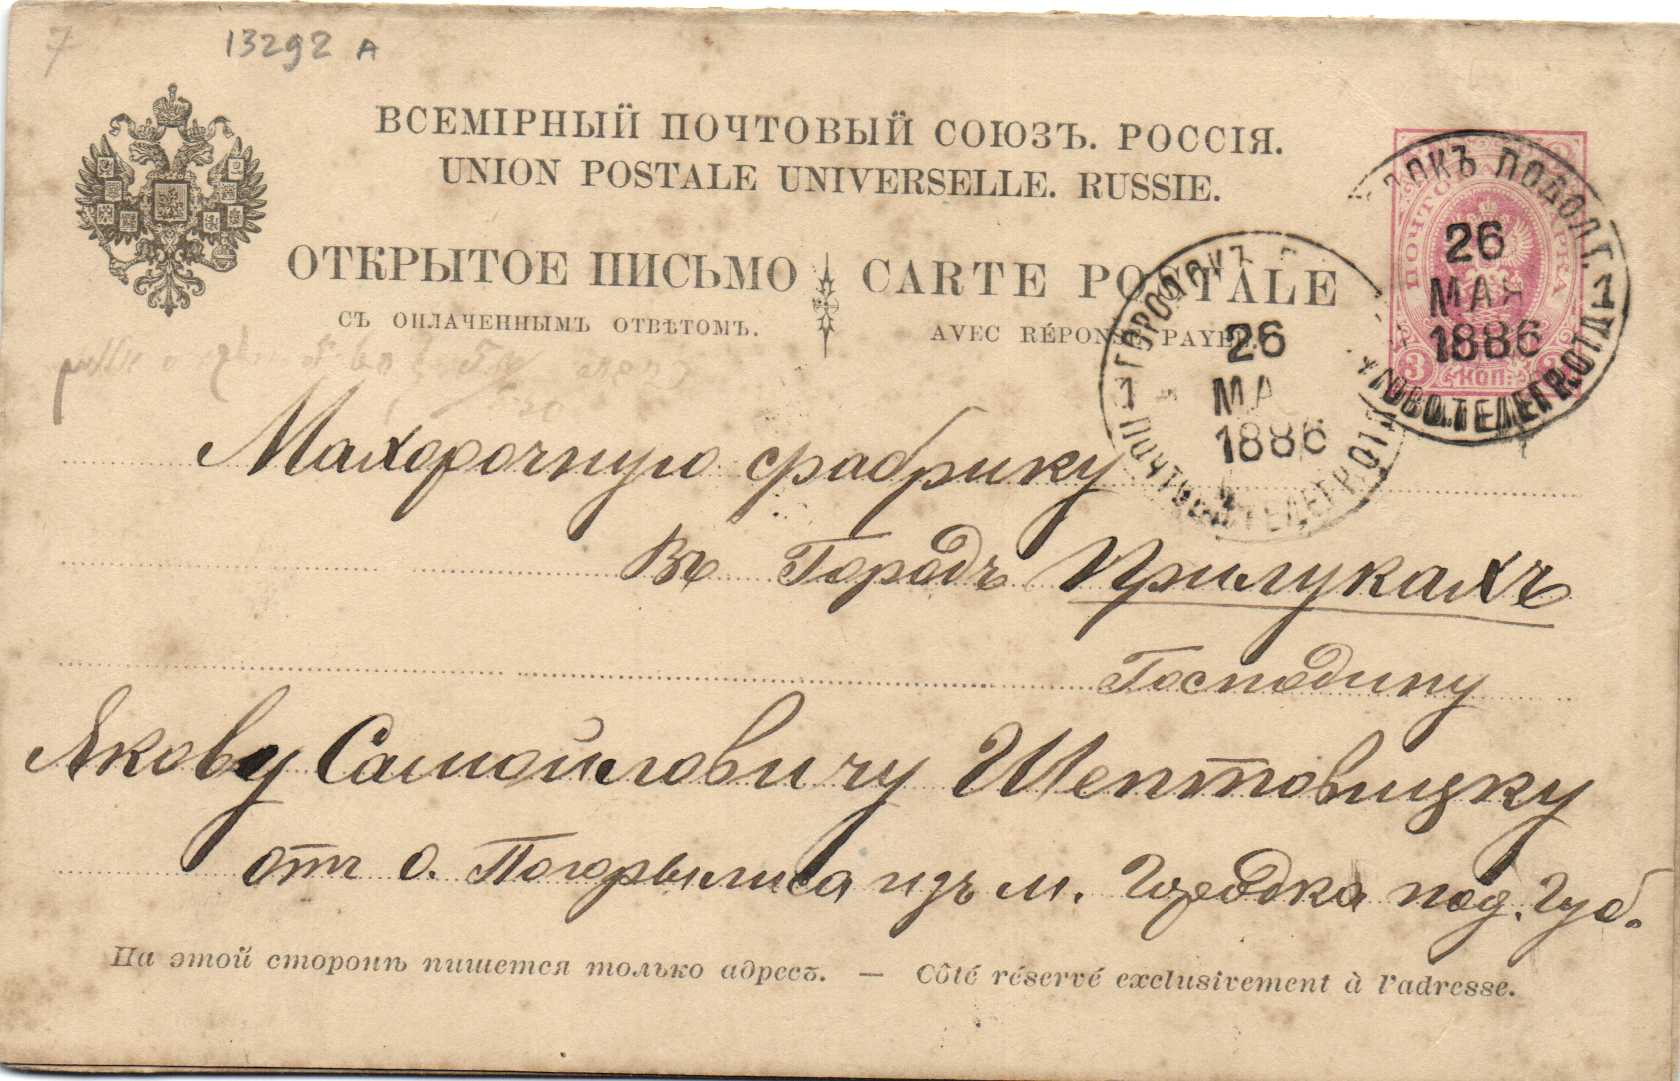 7
13292 A
ВСЕМІРНЫЙ ПОЧТОВЫЙ СОЮЗЪ. РОССІЯ.
UNION POSTALE UNIVERSELLE. RUSSIE.
ОТКРЫТОЕ ПИСЬМО
СЪ ОПЛАЧЕННЫМЪ ОТВѢТОМЪ.
CARTE POSTALE
AVEC RÉPONSE PAYÉE.
ПОЧТО МАРКА
3 КОП.
ПОДОЛ.Г. 1
26
МАЯ
1886
ТЕЛЕГР.ОТД
ГОРОДОКЪ
26
МА
1886
1 ПОЧТОВО ТЕЛЕГР.ОТ
Махорочную фабрику
Въ Городъ Прилукахъ
Господину
Якову Самойловичу Шептовицку
отъ о. изъ м. Городка под. Губ.
На этой сторонѣ пишется только адресъ. — Côté réservé exclusivement à l'adresse.